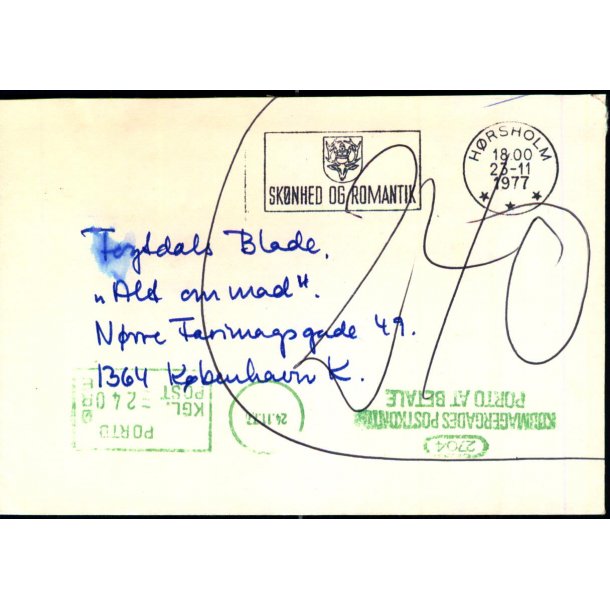 SKØNHED OG ROMANTIK
HØRSHOLM
18.00
23-11
1977
Fogtdals Blade,
„Alt om mad".
Nørre Farimagsgade 49.
1364 København K.
KGL. POST
PORTO
24.11.77
KØBMAGERGADES POSTKONTOR
PORTO AT BETALE
2704